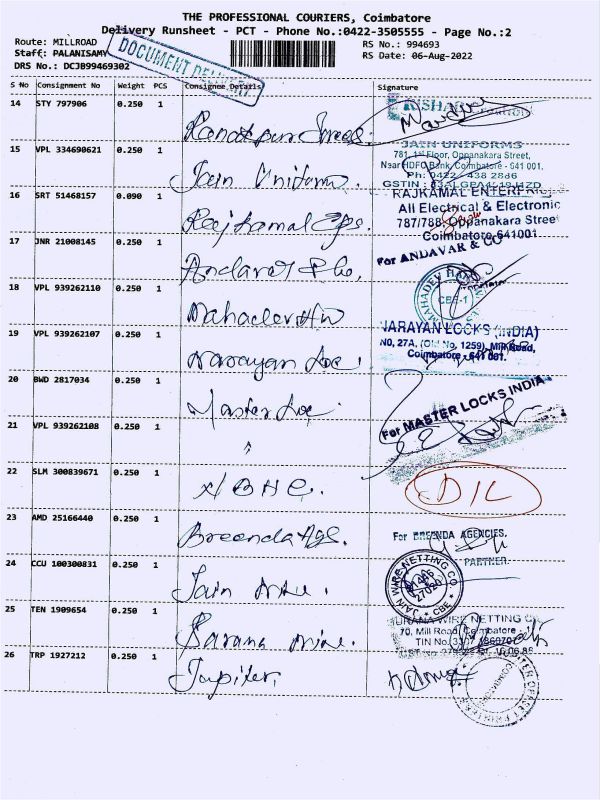 THE PROFESSIONAL COURIERS, Coimbatore
Delivery Runsheet - PCT - Phone No.:0422-3505555 - Page No.:2
Route: MILLROAD
RS No.: 994693
Staff: PALANISAMY
RS Date: 06-Aug-2022
DRS No.: DCJB99469302
DOCUMENT DELIVERY
S No Consignment No Weight PCS Consignee Details Signature
14 STY 797906 0.250 1
15 VPL 334690621 0.250 1 Jain Uniform.
JAIN UNIFORMS
781, 1st Floor, Oppanakara Street,
Near HDFC Bank, Coimbatore - 641 001.
16 SRT 51468157 0.090 1 Rajkamal Eps.
RAJKAMAL ENTERPRISE
All Electrical & Electronic
787/788, Oppanakara Street
Coimbatore-641001
17 JNR 21008145 0.250 1
For ANDAVAR & CO
18 VPL 939262110 0.250 1 Mahadev Hw
MAHADEV
CBE-1
19 VPL 939262107 0.250 1 Narayan Loc
NARAYAN LOCKS (INDIA)
NO, 27A, (Old No, 1259), Mill Road,
Coimbatore - 641 001.
20 BWD 2817034 0.250 1 Master Loc
For MASTER LOCKS INDIA
21 VPL 939262108 0.250 1 "
22 SLM 300839671 0.250 1 DIL
23 AMD 25166440 0.250 1 Breenda Ags.
For BREENDA AGENCIES,
PARTNER.
24 CCU 100300831 0.250 1 Jain
JAIN WIRE NETTING CO.
CBE
25 TEN 1909654 0.250 1
WIRE NETTING CO
70, Mill Road, Coimbatore - 1
TIN No.
26 TRP 1927212 0.250 1 Jupiter.